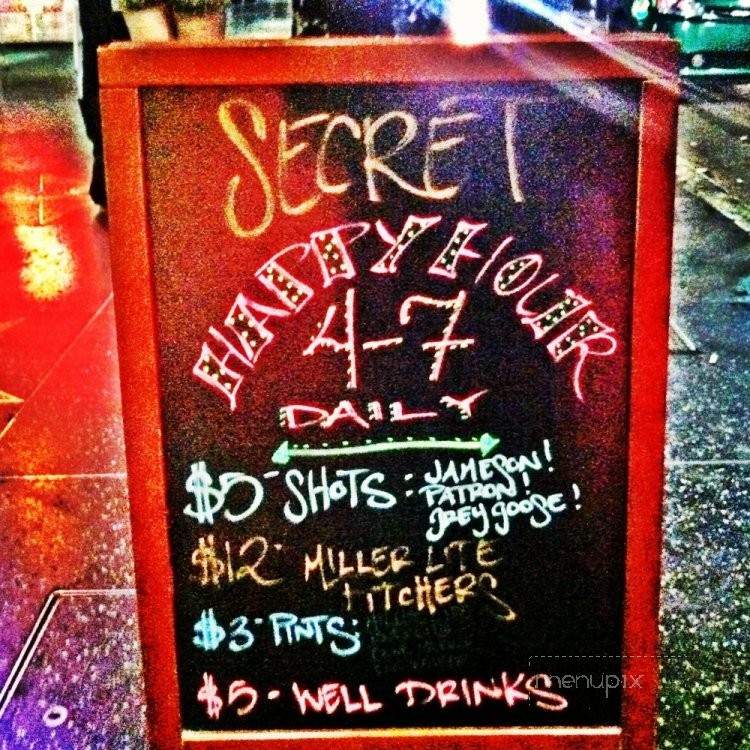 SECRET
HAPPY HOUR
4-7
DAILY
$5- SHOTS: JAMESON!
PATRON!
GREY GOOSE!
$12- MILLER LITE
PITCHERS
$3- PINTS:
$5- WELL DRINKS
menupix